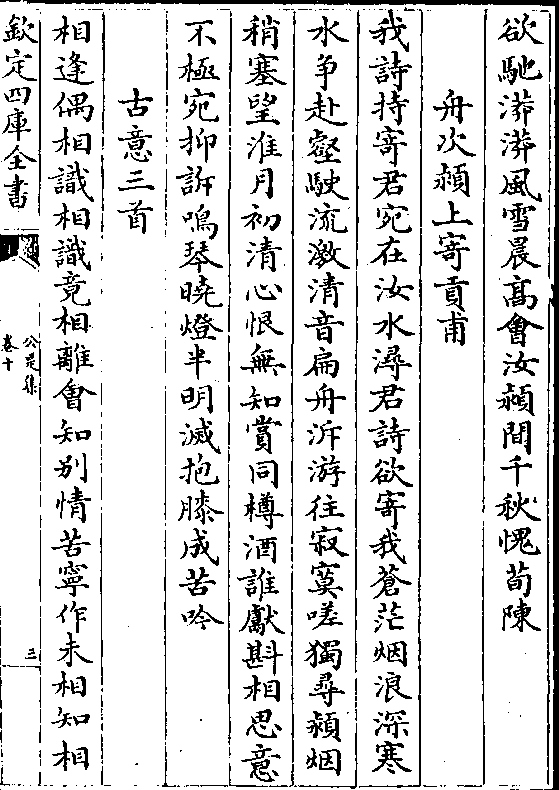 欲馳漭漭風雪晨髙會汝潁間千秋愧荀陳
舟次潁上寄貢甫
我詩持寄君宛在汝水潯君詩欲寄我蒼茫烟浪深寒
水争赴壑駛流激清音扁舟泝游往寂寞嗟獨尋潁烟
稍塞望淮月初清心恨無知賞同樽酒誰獻斟相思意
不極宛抑訴鳴琴曉燈半明滅抱膝成苦吟
古意三首
相逢偶相識相識竟相離會知别情苦寧作未相知相
欽定四庫全書
公是集
卷十
三